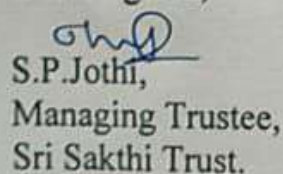 S.P.Jothi,
Managing Trustee,
Sri Sakthi Trust.